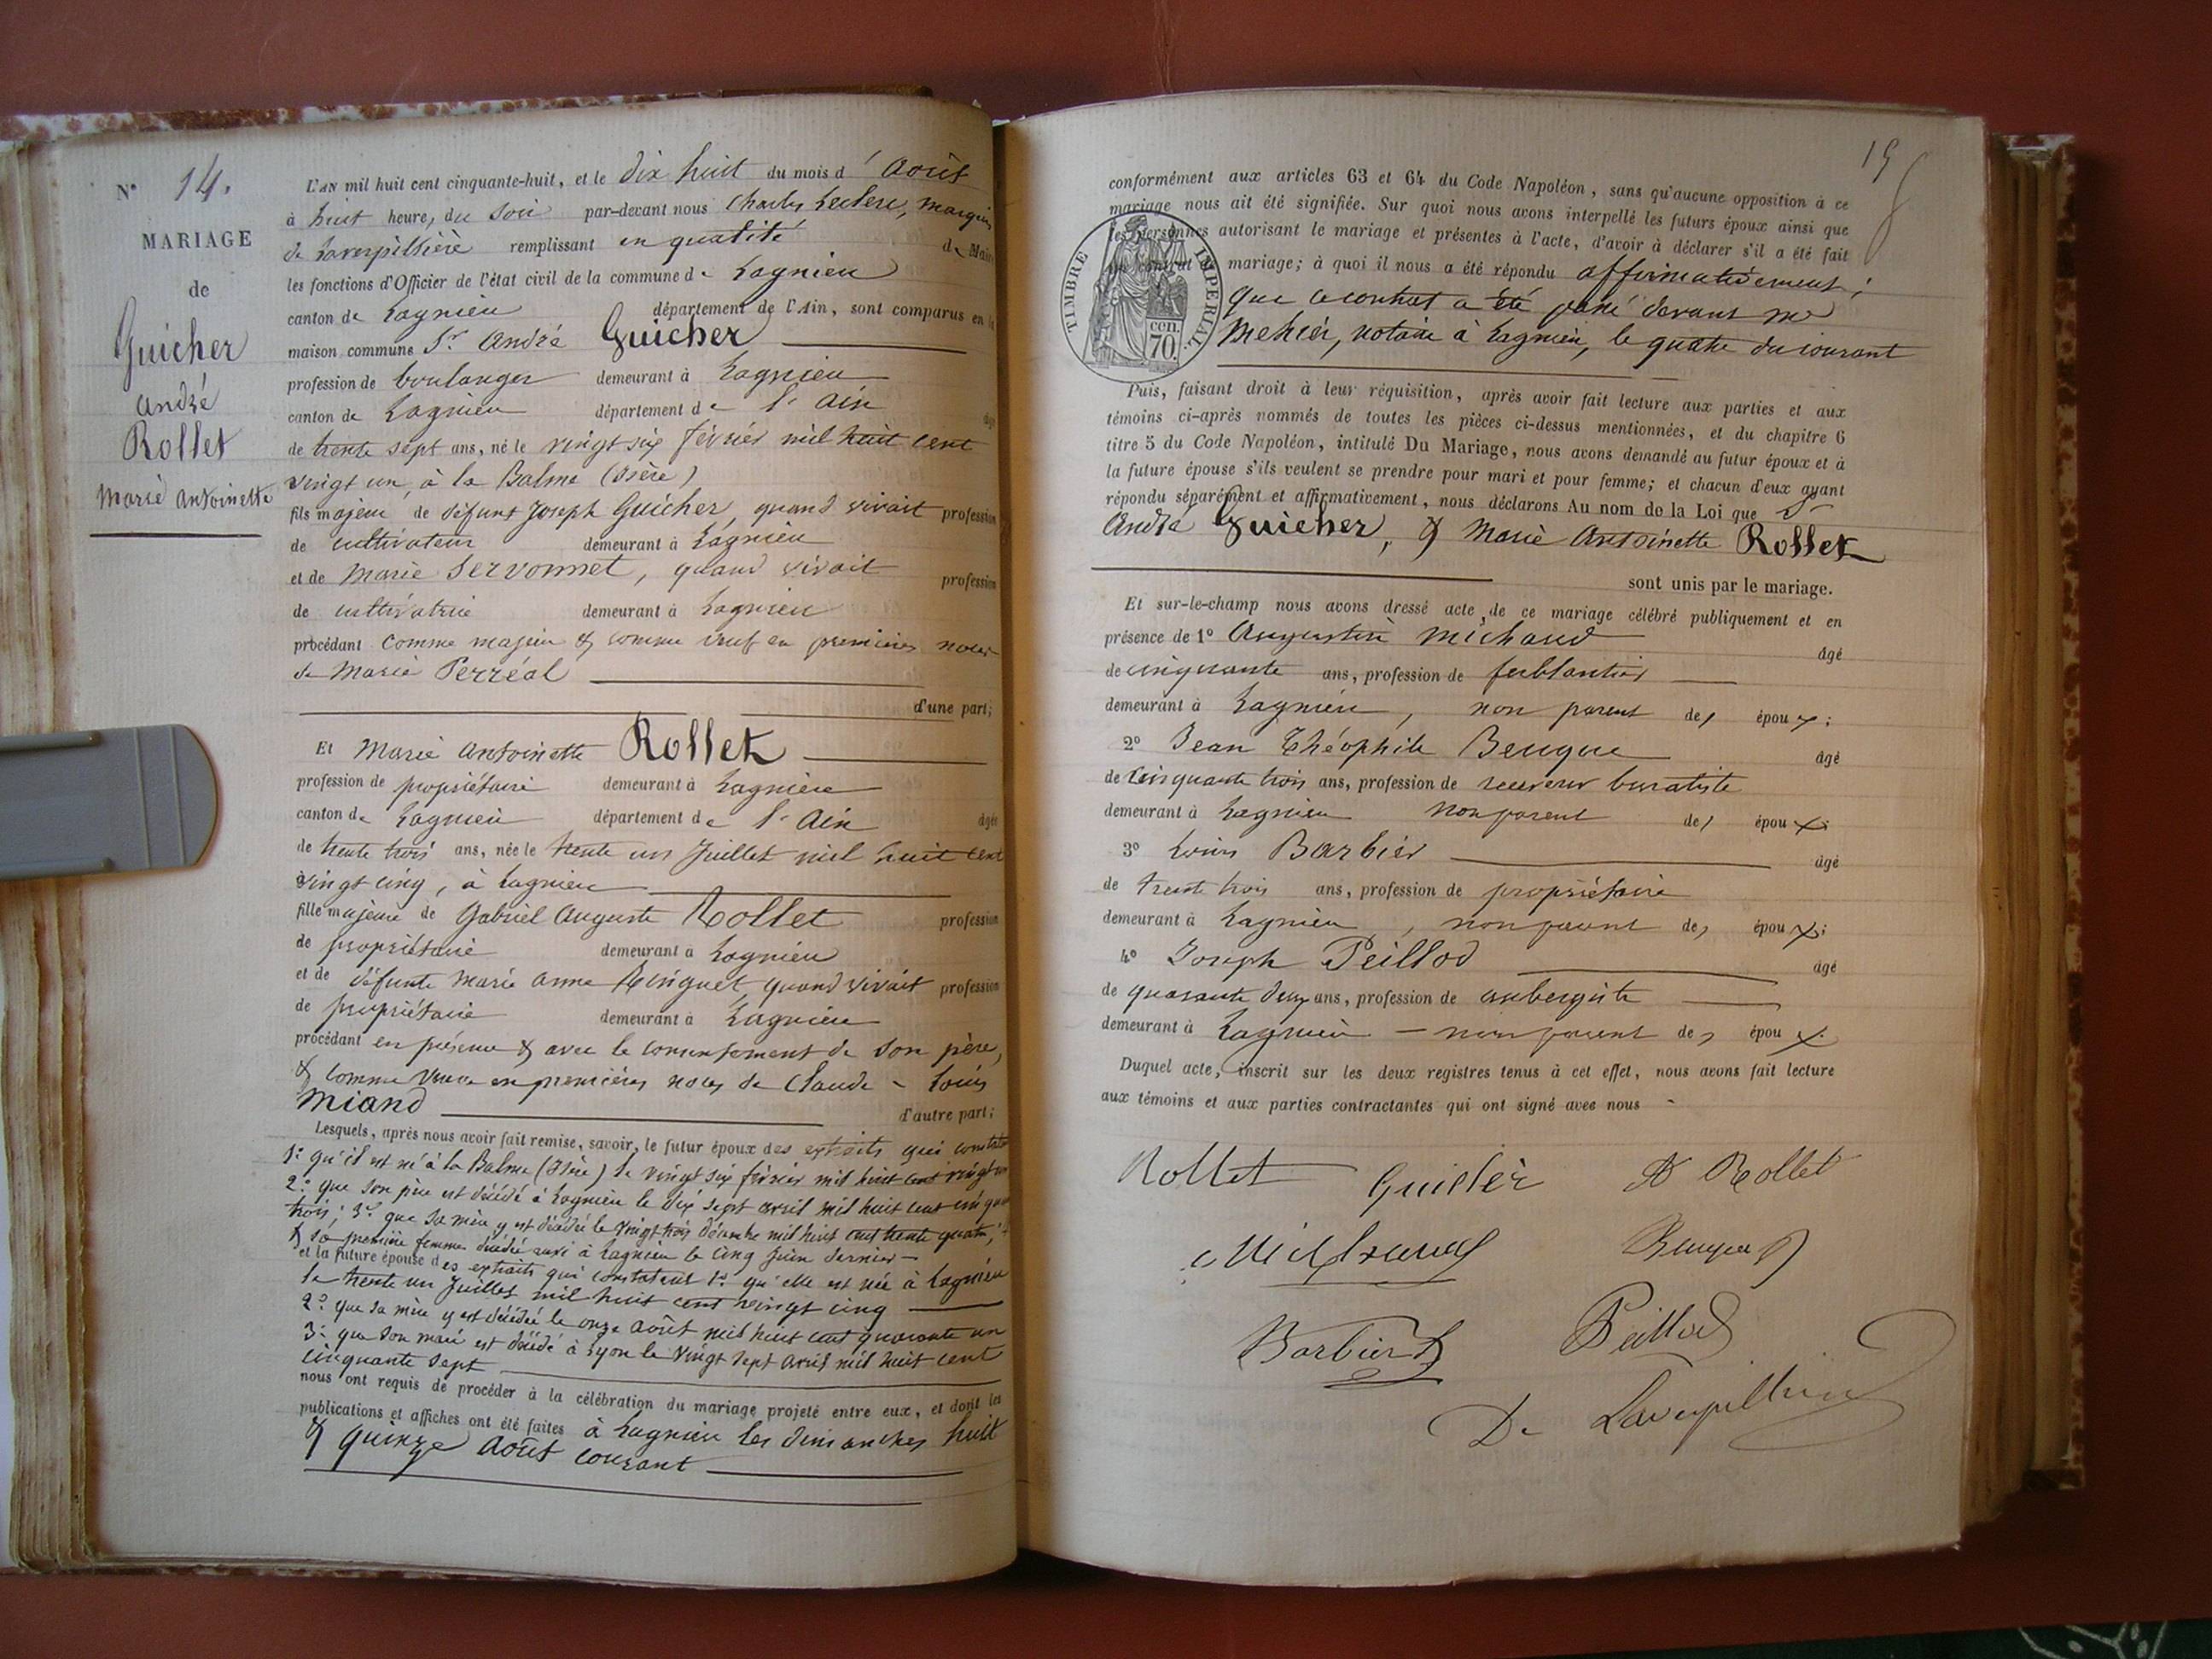 N° 14.
MARIAGE
de
Guicher
André
Rollet
Marie Antoinette
L'AN mil huit cent cinquante-huit, et le dix huit du mois d' Août
à huit heure, du soir par-devant nous Charles Leclerc, marquis
de Laverpillière remplissant en qualité de Maire
les fonctions d'Officier de l'état civil de la commune de Lagnieu
canton de Lagnieu département de l'Ain, sont comparus en la
maison commune Sr André Guicher
profession de boulanger demeurant à Lagnieu
canton de Lagnieu département de l'Ain âgé
de trente sept ans, né le vingt six février mil huit cent
vingt un, à la Balme (Isère)
fils majeur de défunt Joseph Guicher, quand vivait profession
de cultivateur demeurant à Lagnieu
et de Marie Servonnet, quand vivait profession
de cultivatrice demeurant à Lagnieu
procédant comme majeur & comme veuf en premières noces
de Marie Perréal
d'une part;
Et Marie Antoinette Rollet
profession de propriétaire demeurant à Lagnieu
canton de Lagnieu département de l'Ain âgée
de trente trois ans, née le trente un Juillet mil huit cent
vingt cinq, à Lagnieu
fille majeure de Gabriel Auguste Rollet profession
de propriétaire demeurant à Lagnieu
et de défunte Marie Anne quand vivait profession
de propriétaire demeurant à Lagnieu
procédant en présence & avec le consentement de son père,
& comme veuve en premières noces de Claude - Louis
Miand
d'autre part;
Lesquels, après nous avoir fait remise, savoir, le futur époux des extraits qui constatent
1° qu'il est né à la Balme (Isère) le vingt six février mil huit cent vingt un
2° que son père est décédé à Lagnieu le dix sept avril mil huit cent cinquante
trois; 3° que sa mère y est décédée le vingt trois décembre mil huit cent trente quatre;
& sa première femme décédée aussi à Lagnieu le cinq juin dernier -
et la future épouse des extraits qui constatent 1° qu'elle est née à Lagnieu
le trente un Juillet mil huit cent vingt cinq
2° que sa mère y est décédée le onze août mil huit cent quarante un
3° que son mari est décédé à Lyon le vingt sept avril mil huit cent
cinquante sept
nous ont requis de procéder à la célébration du mariage projeté entre eux, et dont les
publications et affiches ont été faites à Lagnieu les dimanches huit
& quinze Août courant
19
conformément aux articles 63 et 64 du Code Napoléon, sans qu'aucune opposition à ce
mariage nous ait été signifiée. Sur quoi nous avons interpellé les futurs époux ainsi que
les personnes autorisant le mariage et présentes à l'acte, d'avoir à déclarer s'il a été fait
un contrat de mariage; à quoi il nous a été répondu affirmativement;
que ce contrat a été passé devant me
Mehier, notaire à Lagnieu, le quatre du courant
TIMBRE IMPERIAL
cen.
70.
Puis, faisant droit à leur réquisition, après avoir fait lecture aux parties et aux
témoins ci-après nommés de toutes les pièces ci-dessus mentionnées, et du chapitre 6
titre 5 du Code Napoléon, intitulé Du Mariage, nous avons demandé au futur époux et à
la future épouse s'ils veulent se prendre pour mari et pour femme; et chacun d'eux ayant
répondu séparément et affirmativement, nous déclarons Au nom de la Loi que Sr
André Guicher, & Marie Antoinette Rollet
sont unis par le mariage.
Et sur-le-champ nous avons dressé acte de ce mariage célébré publiquement et en
présence de 1° Augustin Michaud âgé
de cinquante ans, profession de ferblantier
demeurant à Lagnieu, non parent des époux;
2° Jean Théophile Beugue âgé
de cinquante trois ans, profession de receveur buraliste
demeurant à Lagnieu non parent des époux;
3° Louis Barbier âgé
de trente trois ans, profession de propriétaire
demeurant à Lagnieu, non parent des époux;
4° Joseph Peillod âgé
de quarante deux ans, profession de aubergiste
demeurant à Lagnieu - non parent des époux.
Duquel acte, inscrit sur les deux registres tenus à cet effet, nous avons fait lecture
aux témoins et aux parties contractantes qui ont signé avec nous -
Rollet Guicher A Rollet
Michaud
Barbier Peillod
De Laverpillière